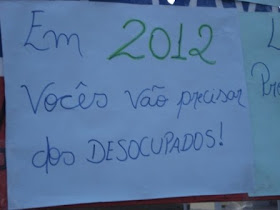 Em 2012
Vocês vão precisar
dos DESOCUPADOS!